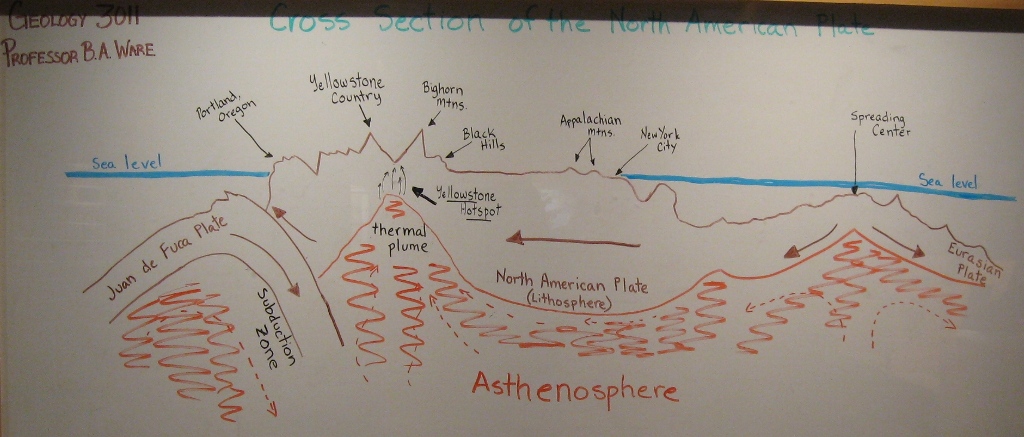 GEOLOGY 3011
PROFESSOR B.A. WARE
Cross Section of the North American Plate
Portland,
Oregon
Yellowstone
Country
Bighorn
mtns.
Black
Hills
Appalachian
mtns.
New York
City
Spreading
Center
Sea level
Sea level
Yellowstone
Hotspot
thermal
plume
Juan de Fuca Plate
Subduction
Zone
North American Plate
(Lithosphere)
Eurasian
Plate
Asthenosphere